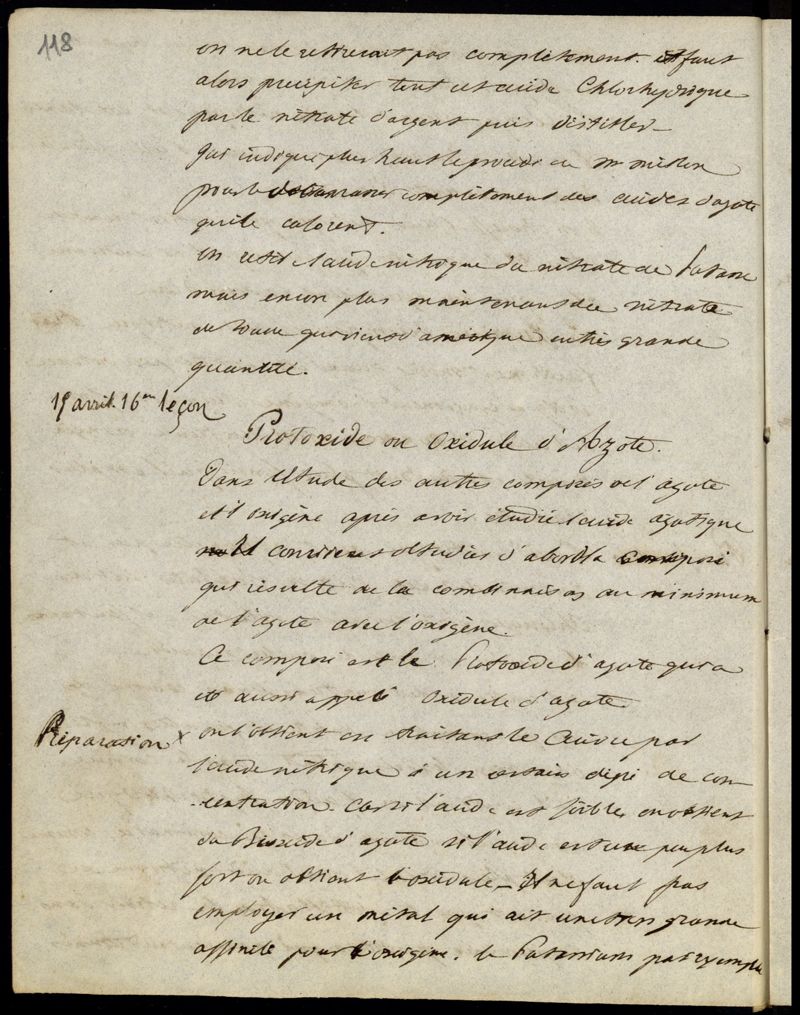 118
on ne le retirerait pas complètement. il faut
alors precipiter tout cet acide Chlorhydrique
par le nitrate d'argent puis distiller_
j'ai indiqué plus haut le procédé de Mr millon
pour le débarrasser complètement des acides d'azote
qui le colorent.
on retire l'acide nitrique du nitrate de Potasse
mais encore plus maintenant du nitrate
de soude qui vient d'amérique en très grande
quantité.
19 avril. 16me leçon
Protoxide ou Oxidule d'Azote.
Dans l'étude des autres composés de l'azote
et l'oxigène après avoir étudié l'acide azotique
Il convient d'étudier d'abord le composé
qui résulte de la combinaison au minimum
de l'azote avec l'oxigène.
Ce composé est le Protoxide d'azote qui a
été aussi appelé Oxidule d'azote.
Préparation x on l'obtient en traitant le Cuivre par
l'acide nitrique à un certain degré de con-
-centration. Car si l'acide est foible on obtient
du Bioxide d'azote si l'acide est un peu plus
fort on obtient l'oxidule _ Il ne faut pas
employer un métal qui ait une très grande
affinité pour l'oxigène. le Potassium par exemple